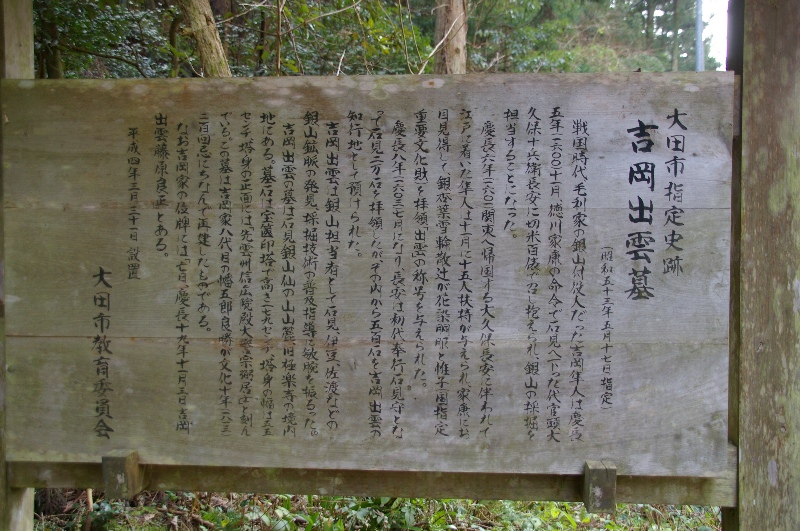 大田市指定史跡
吉岡出雲墓
(昭和五十三年五月十七日指定)
戦国時代、毛利家の銀山付役人だった吉岡隼人は慶長
五年(一六〇〇)十一月、徳川家康の命令で石見へ下った代官頭大
久保十兵衛長安に切米百俵で召し抱えられ、銀山の採掘を
担当することになった。
慶長六年(一六〇一)関東へ帰国する大久保長安に伴われて
江戸に着いた隼人は十月に十五人扶持が与えられ家康にお
目見得して、銀杏葉雪輪散辻が花染胴服と帷子(国指定
重要文化財)を拝領、出雲の称号を与えられた。
慶長八年(一六〇三)七月になり、長安は初代奉行石見守とな
って石見二万石を拝領したがその内から五百石を吉岡出雲の
知行地として預けられた。
吉岡出雲は銀山担当者として石見、伊豆、佐渡などの
銀山鉱脈の発見、採掘技術の普及指導に敏腕を振るった。
吉岡出雲の墓は石見銀山仙の山山麓、旧極楽寺の境内
地にある。墓石は宝篋印塔で高さ二七九センチ、塔身の幅は五五
センチ、塔身の正面には先雲州信広院殿大誉宗弥居士と刻ん
でいる。この墓は吉岡家八代目の幡五郎良勝が文化十年(一八一三)
二百回忌にちなんで再建したものである。
なお吉岡家の位牌には、七日、慶長十九年十一月三日吉岡
出雲藤原良正とある。
平成四年三月二十一日 設置
大田市教育委員会